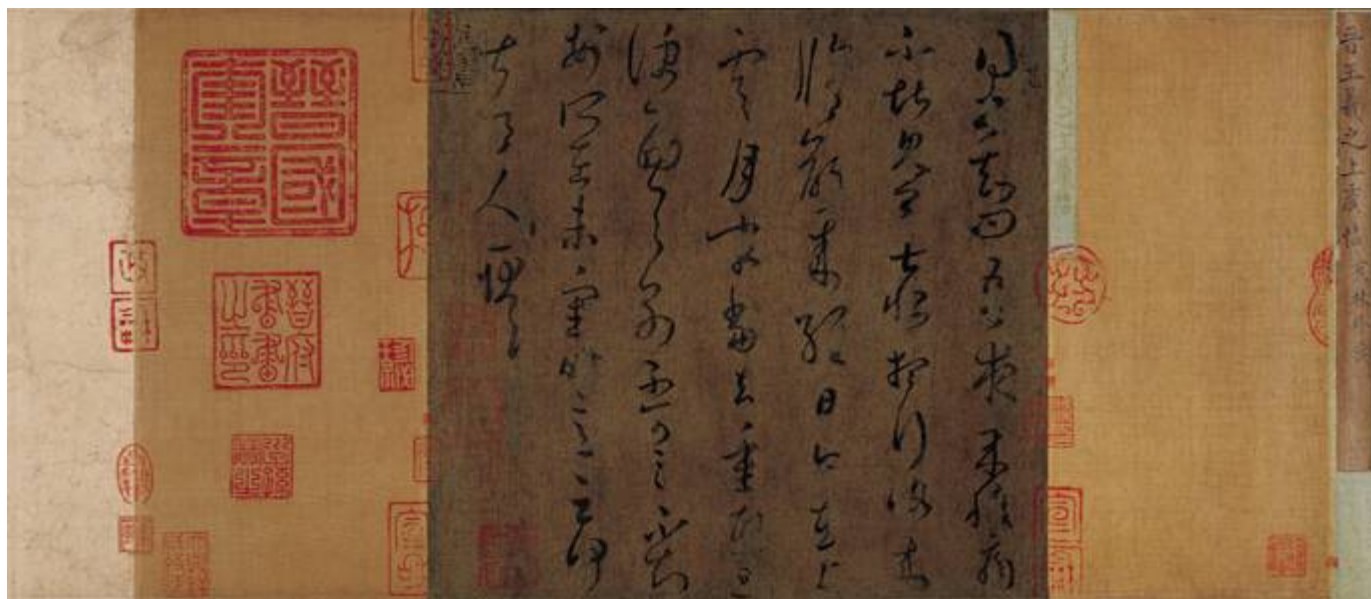 晉王羲之上虞帖
得書知問吾夜来腹痛
不堪見卿甚恨想行復来
脩齡来經日今在上
虞月末當去重熙旦
便西與別不可言不知
安所在未審時意云何
甚令人耿耿
晉國奎章
晉府書畫之印
政和
宣和